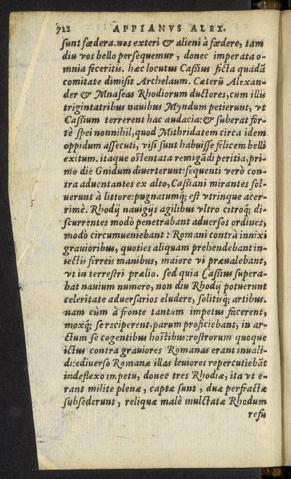 712 APPIANVS ALEX.
sunt fœdera. nos exteri & alieni à fœdere, tam
diu vos bello persequemur, donec imperata o-
mnia feceritis. hæc locutus Cassius ficta quadã
comitate dimisit Archelaum. Cæterũ Alexan-
der & Mnaseas Rhodiorum ductores, cum illis
trigintatribus nauibus Myndum petierunt, vt
Cassium terrerent hac audacia: & suberat for-
tè spei nonnihil, quod Mithridatem circa idem
oppidum assecuti, visi sunt habuisse felicem belli
exitum. itaque ostentata remigãdi peritia, pri-
mo die Gnidum diuerterunt: sequenti verò con-
tra aduentantes ex alto, Cassiani mirantes sol-
uerunt à littore: pugnatumq́; est vtrinque acer-
rimè. Rhodij nauigijs agilibus vltro citroq́; di-
scurrentes modò penetrabant aduersos ordines,
modò circumueniebant: Romani contrà innixi
grauioribus, quoties aliquam prehendebant in-
iectis ferreis manibus, maiore vi præualebant,
vt in terrestri prælio. sed quia Cassius supera-
bat nauium numero, non diu Rhodij potuerunt
celeritate aduersarios eludere, solitisq́; artibus.
nam cùm à fronte tantum impetus facerent,
moxq́; se reciperent, parum proficiebant, in ar-
ctum se cogentibus hostibus: rostrorum quoque
ictus contra grauiores Romanas erant inuali-
di: ediuerso Romanæ illas leuiores repercutiebãt
indeflexo impetu, donec tres Rhodiæ, ita vt e-
rant milite plenæ, captæ sunt, duæ perfractæ
subsederunt, reliquæ malè mulctatæ Rhodum
refu